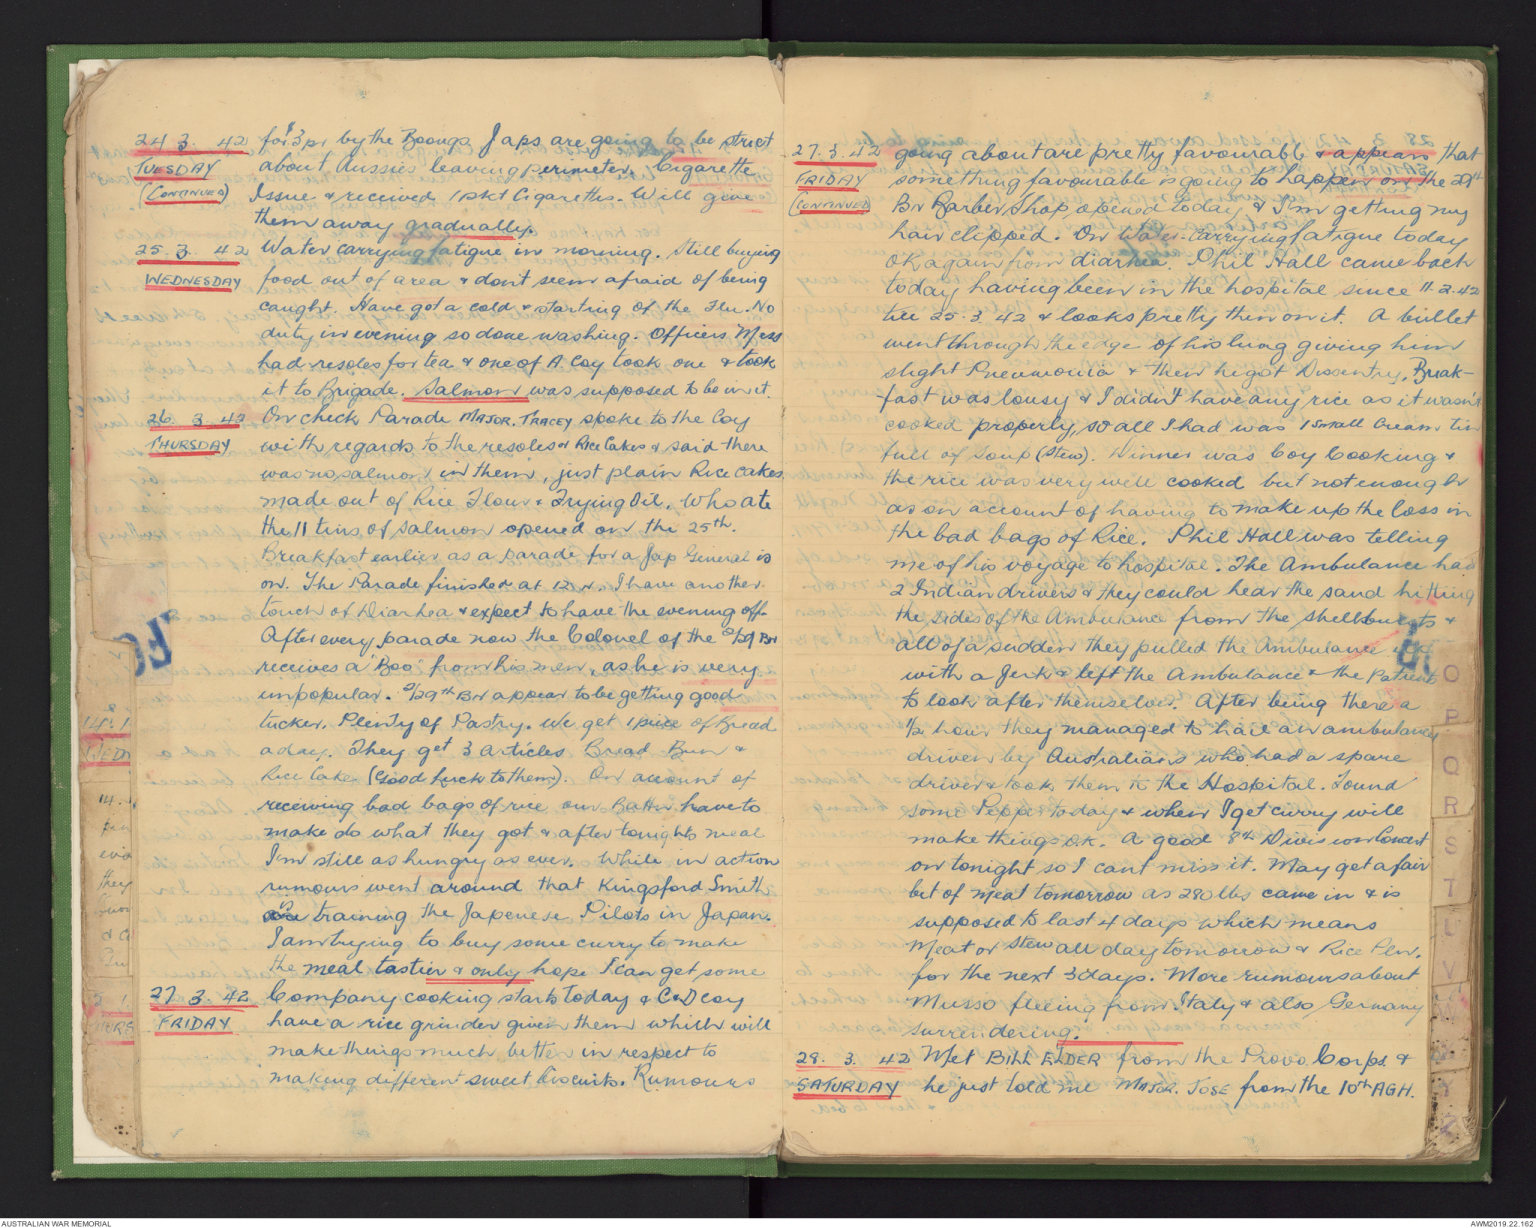 24 3. 42 for 3 pr by the Boongs. Japs are going to be strict
TUESDAY about Aussies leaving perimeter. Cigarette
(CONTINUED) Issue & received 1 pkt Cigarettes. Will give
them away gradually.
25. 3. 42 Water carrying fatigue in morning. Still buying
WEDNESDAY food out of area & don't seem afraid of being
caught. Have got a cold & starting of the Flu. No
duty in evening so done washing. Officers Mess
had resoles for tea & one of A. Coy took one & took
it to Brigade. Salmon was supposed to be in it.
26. 3. 42 On check Parade MAJOR. TRACEY spoke to the Coy
THURSDAY with regards to the resoles & Rice Cakes & said there
was no salmon in them, just plain Rice cakes
made out of Rice Flour & Frying Oil. Who ate
the 11 tins of salmon opened on the 25th.
Breakfast earlier as a parade for a Jap General is
on. The Parade finished at 12 N. I have another
touch of Diarhea & expect to have the evening off.
After every parade now the Colonel of the 2/29 Bn
receives a "Boo" from his men, as he is very
unpopular. 2/29th Bn appear to be getting good
tucker. Plenty of Pastry. We get 1 piece of Bread
a day. They get 3 articles Bread Bun &
Rice Cake (Good luck to them). On account of
receiving bad bags of rice our Battn have to
make do what they got & after tonights meal
I'm still as hungry as ever. While in action
rumours went around that Kingsford Smith
is training the Japenese Pilots in Japan.
I am trying to buy some curry to make
the meal tastier & only hope I can get some
27. 3. 42 Company cooking starts today & C & D coy
FRIDAY have a rice grinder given them which will
make things much better in respect to
making different sweet biscuits. Rumours
27. 3. 42 going about are pretty favourable & appears that
FRIDAY something favourable is going to happen on the 29th
(CONTINUED) Bn Barber Shop opened today & I'm getting my
hair clipped. On Water-Carrying fatigue today
OK again from diarhea. Phil Hall came back
today having been in the hospital since 11.2.42
till 25.3.42 & looks pretty thin on it. A bullet
went through the edge of his lung giving him
slight Pneumonia & then he got Dissentry. Break-
fast was lousy & I didn't have any rice as it wasn't
cooked properly, so all I had was 1 small Cream tin
full of soup (stew). Dinner was Coy Cooking &
the rice was very well cooked but not enough
as on account of having to make up the loss in
the bad bags of Rice. Phil Hall was telling
me of his voyage to hospital. The Ambulance had
2 Indian drivers & they could hear the sand hitting
the sides of the Ambulance from the shellbursts &
all of a sudden they pulled the Ambulance up
with a Jerk & left the Ambulance & the Patient
to look after themselves. After being there a
1/2 hour they managed to hail an ambulance
driven by Australians who had a spare
driver & took them to the Hospital. Found
some Pepper today & when I get curry will
make things O.K. A good 8th Division Concert
on tonight so I cant miss it. May get a fair
bit of meat tomorrow as 280 lbs came in & is
supposed to last 4 days which means
Meat or Stew all day tomorrow & Rice Plen.
for the next 3 days. More rumours about
Musso fleeing from Italy & also Germany
surrendering.
28. 3. 42 Met BILL ELDER from the Provo Corps &
SATURDAY he just told me MAJOR. JOSE from the 10th AGH.
O
P
Q
R
S
T
U
V
Y
Z
AUSTRALIAN WAR MEMORIAL
AWM2019.22.162